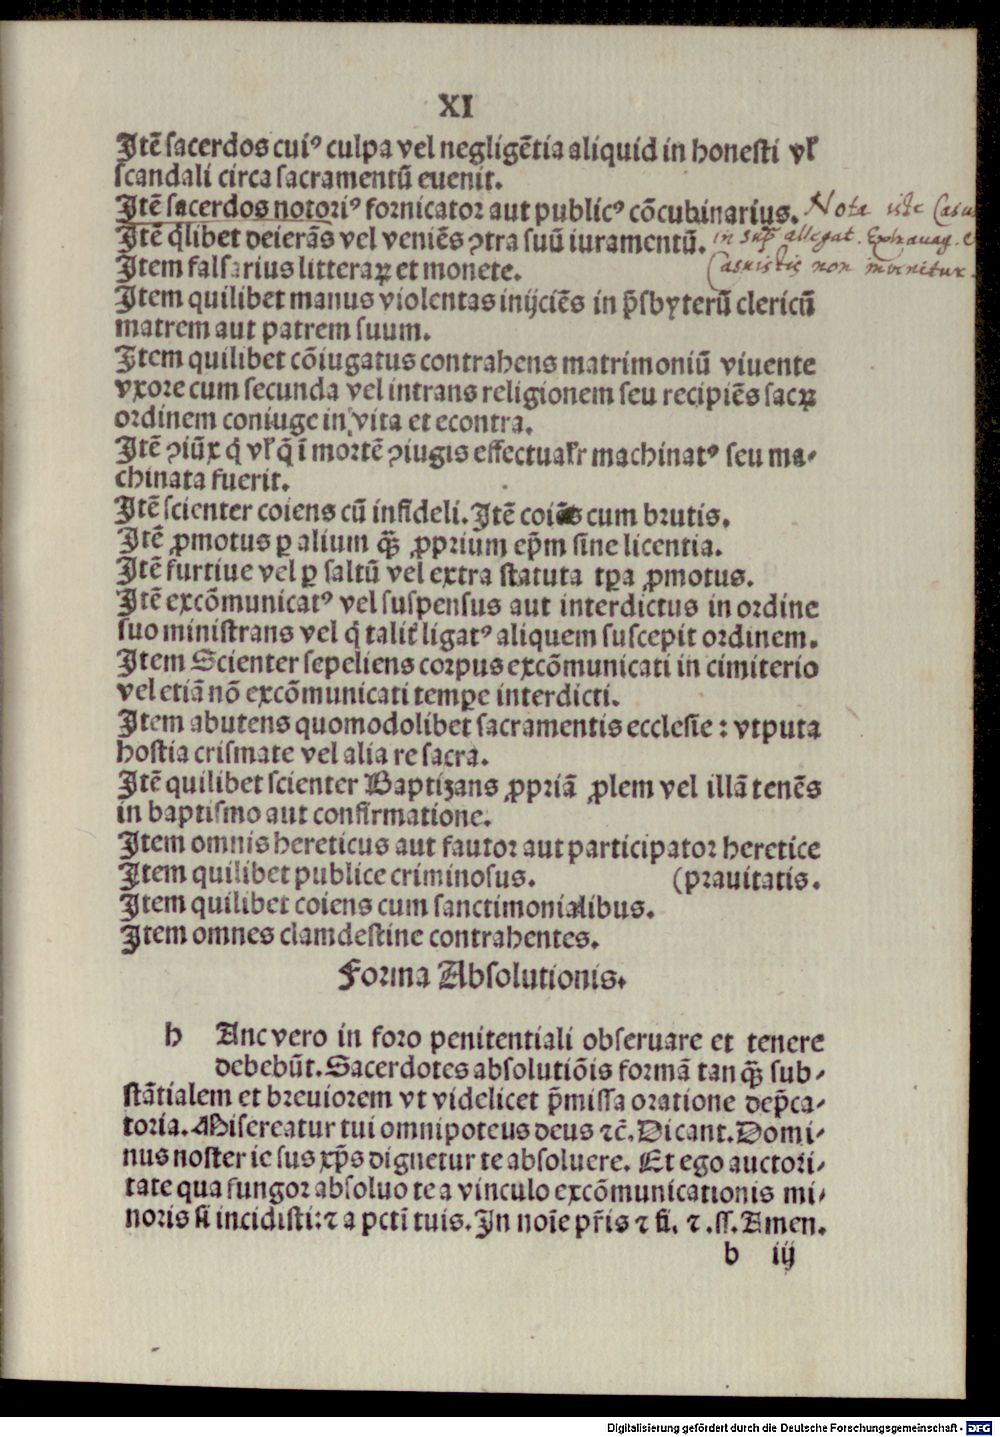 XI
Itē sacerdos cuiꝰ culpa vel negligētia aliquid in honesti vł
scandali circa sacramentū euenit.
Itē sacerdos notoriꝰ fornicator aut publicꝰ cōcubinarius. Nota iste Casus
Itē q̄libet deierās vel veniēs ꝯtra suū iuramentū. in sup͞ allegat. Extrauag. &
Item falsarius litteraꝝ et monete. Casuistis non invenitur.
Item quilibet manus violentas inijciēs in p̄sbyterū clericū
matrem aut patrem suum.
Item quilibet cōiugatus contrahens matrimoniū viuente
vxore cum secunda vel intrans religionem seu recipiēs sacꝝ
ordinem coniuge in vita et econtra.
Itē ꝯiūx q̇ vł q̄ ī mortē ꝯiugis effectualr̄ machinatꝰ seu ma-
chinata fuerit.
Itē scienter coiens cū infideli. Itē coiēs cum brutis.
Itē ꝓmotus ꝑ alium q̄ꝫ ꝓprium ep̄m sine licentia.
Itē furtiue vel ꝑ saltū vel extra statuta tꝑa ꝓmotus.
Itē excōmunicatꝰ vel suspensus aut interdictus in ordine
suo ministrans vel q̇ talit̄ ligatꝰ aliquem suscepit ordinem.
Item Scienter sepeliens corpus excōmunicati in cimiterio
vel etiā nō excōmunicati temꝑe interdicti.
Item abutens quomodolibet sacramentis ecclesie: vtputa
hostia crismate vel alia re sacra.
Itē quilibet scienter Baptizans ꝓpriā ꝓlem vel illā tenēs
in baptismo aut confirmatione.
Item omnis hereticus aut fautor aut participator heretice
Item quilibet publice criminosus. (prauitatis.
Item quilibet coiens cum sanctimonialibus.
Item omnes clamdestine contrahentes.
Forma Absolutionis.
h Anc vero in foro penitentiali obseruare et tenere
debebūt. Sacerdotes absolutiōis formā tanq̄ꝫ sub-
stātialem et breuiorem vt videlicet p̄missa oratione dep̄ca-
toria. Misereatur tui omnipoteus deus ⁊c̄. Dicant. Domi-
nus noster ie sus xp̄s dignetur te absoluere. Et ego auctori-
tate qua fungor absoluo te a vinculo excōmunicationis mi-
noris si incidisti: ⁊ a pctī tuis. In noīe pr̄is ⁊ fi. ⁊ .ss. Amen.
b iij
Digitalisierung gefördert durch die Deutsche Forschungsgemeinschaft - DFG